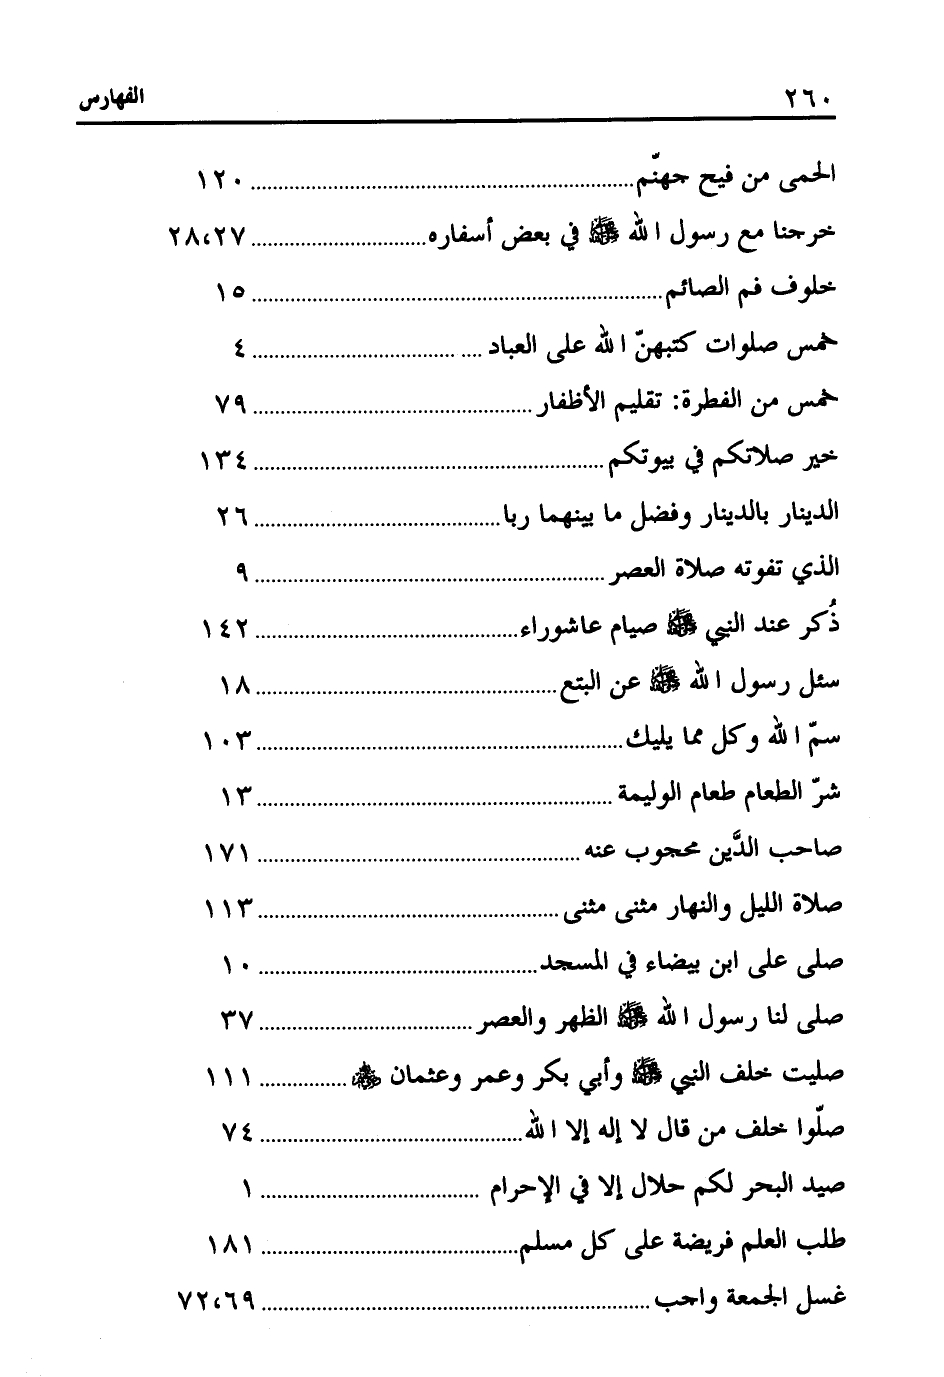 ٢٦٠ الفهارس
الحمى من فيح جهنّم ١٢٠
خرجنا مع رسول الله ﷺ في بعض أسفاره ٢٨،٢٧
خلوف فم الصائم ١٥
خمس صلوات كتبهنّ الله على العباد ٤
خمس من الفطرة: تقليم الأظفار ٧٩
خير صلاتكم في بيوتكم ١٣٤
الدينار بالدينار وفضل ما بينهما ربا ٢٦
الذي تفوته صلاة العصر ٩
ذُكر عند النبي ﷺ صيام عاشوراء ١٤٢
سئل رسول الله ﷺ عن البتع ١٨
سمّ الله وكل مما يليك ١٠٣
شرّ الطعام طعام الوليمة ١٣
صاحب الدَّين محجوب عنه ١٧١
صلاة الليل والنهار مثنى مثنى ١١٣
صلى على ابن بيضاء في المسجد ١٠
صلى لنا رسول الله ﷺ الظهر والعصر ٣٧
صليت خلف النبي ﷺ وأبي بكر وعمر وعثمان ١١١
صلّوا خلف من قال لا إله إلا الله ٧٤
صيد البحر لكم حلال إلا في الإحرام ١
طلب العلم فريضة على كل مسلم ١٨١
غسل الجمعة واجب ٧٢،٦٩